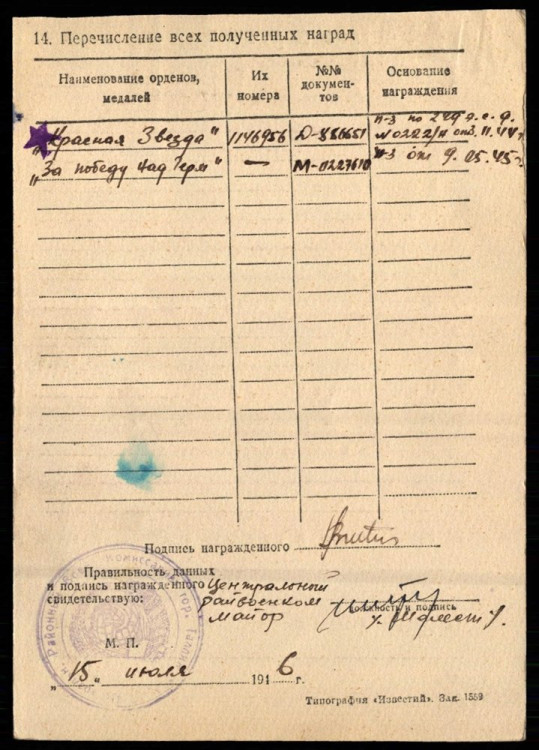 14. Перечисление всех полученных наград
Наименование орденов, медалей
Их номера
№№ документов
Основание награждения
"Красная Звезда" 1146956 Д-886651 п-з по 249 э.с.д. №0222/н от 3.11.44г.
"За победу над Герм" — М-0227610 п-з от 9.05.45г.
Подпись награжденного
Правильность данных
и подпись награжденного Центральный
свидетельствую: райвоенком
майор
должность и подпись
М. П.
"15" июля 1946 г.
Типография «Известий». Зак. 1559